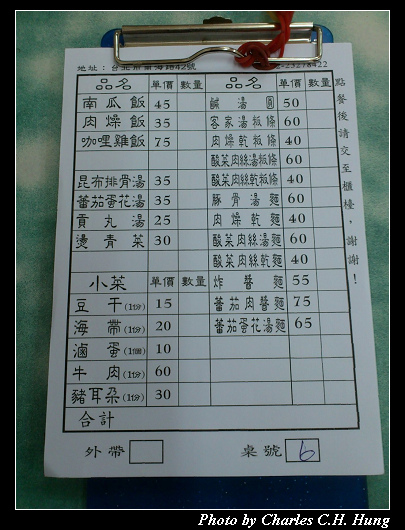 地址：台北市 路42號 23278422
品名 單價 數量 品名 單價 數量
南瓜飯 45 鹹湯圓 50
肉燥飯 35 客家湯粄條 60
咖哩雞飯 75 肉燥乾粄條 40
酸菜肉絲湯粄條 60
昆布排骨湯 35 酸菜肉絲乾粄條 40
蕃茄蛋花湯 35 豚骨湯麵 60
貢丸湯 25 肉燥乾麵 40
燙青菜 30 酸菜肉絲湯麵 60
酸菜肉絲乾麵 40
小菜 單價 數量 炸醬麵 55
豆干(1份) 15 蕃茄肉醬麵 75
海帶(1份) 20 蕃茄蛋花湯麵 65
滷蛋(1個) 10
牛肉(1份) 60
豬耳朵(1份) 30
合計
外帶 桌號 6
點餐後請交至櫃檯，謝謝！
Photo by Charles C.H. Hung